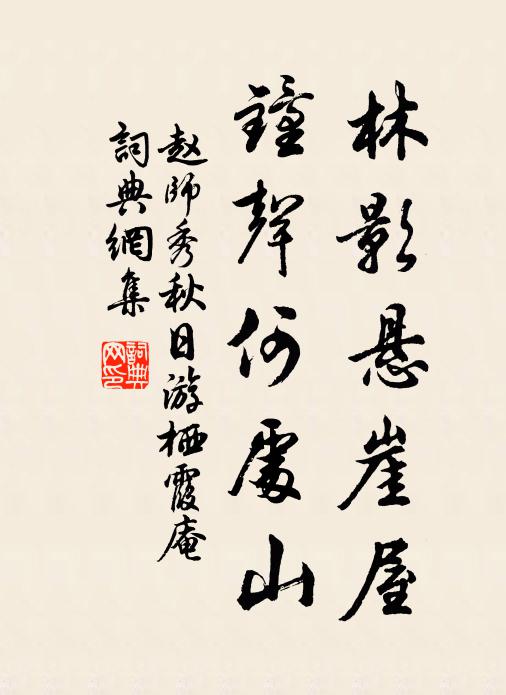 林影悬崖屋
鐘聲何處山
赵師秀秋日游栖霞庵
詞典網集
詞典
网印